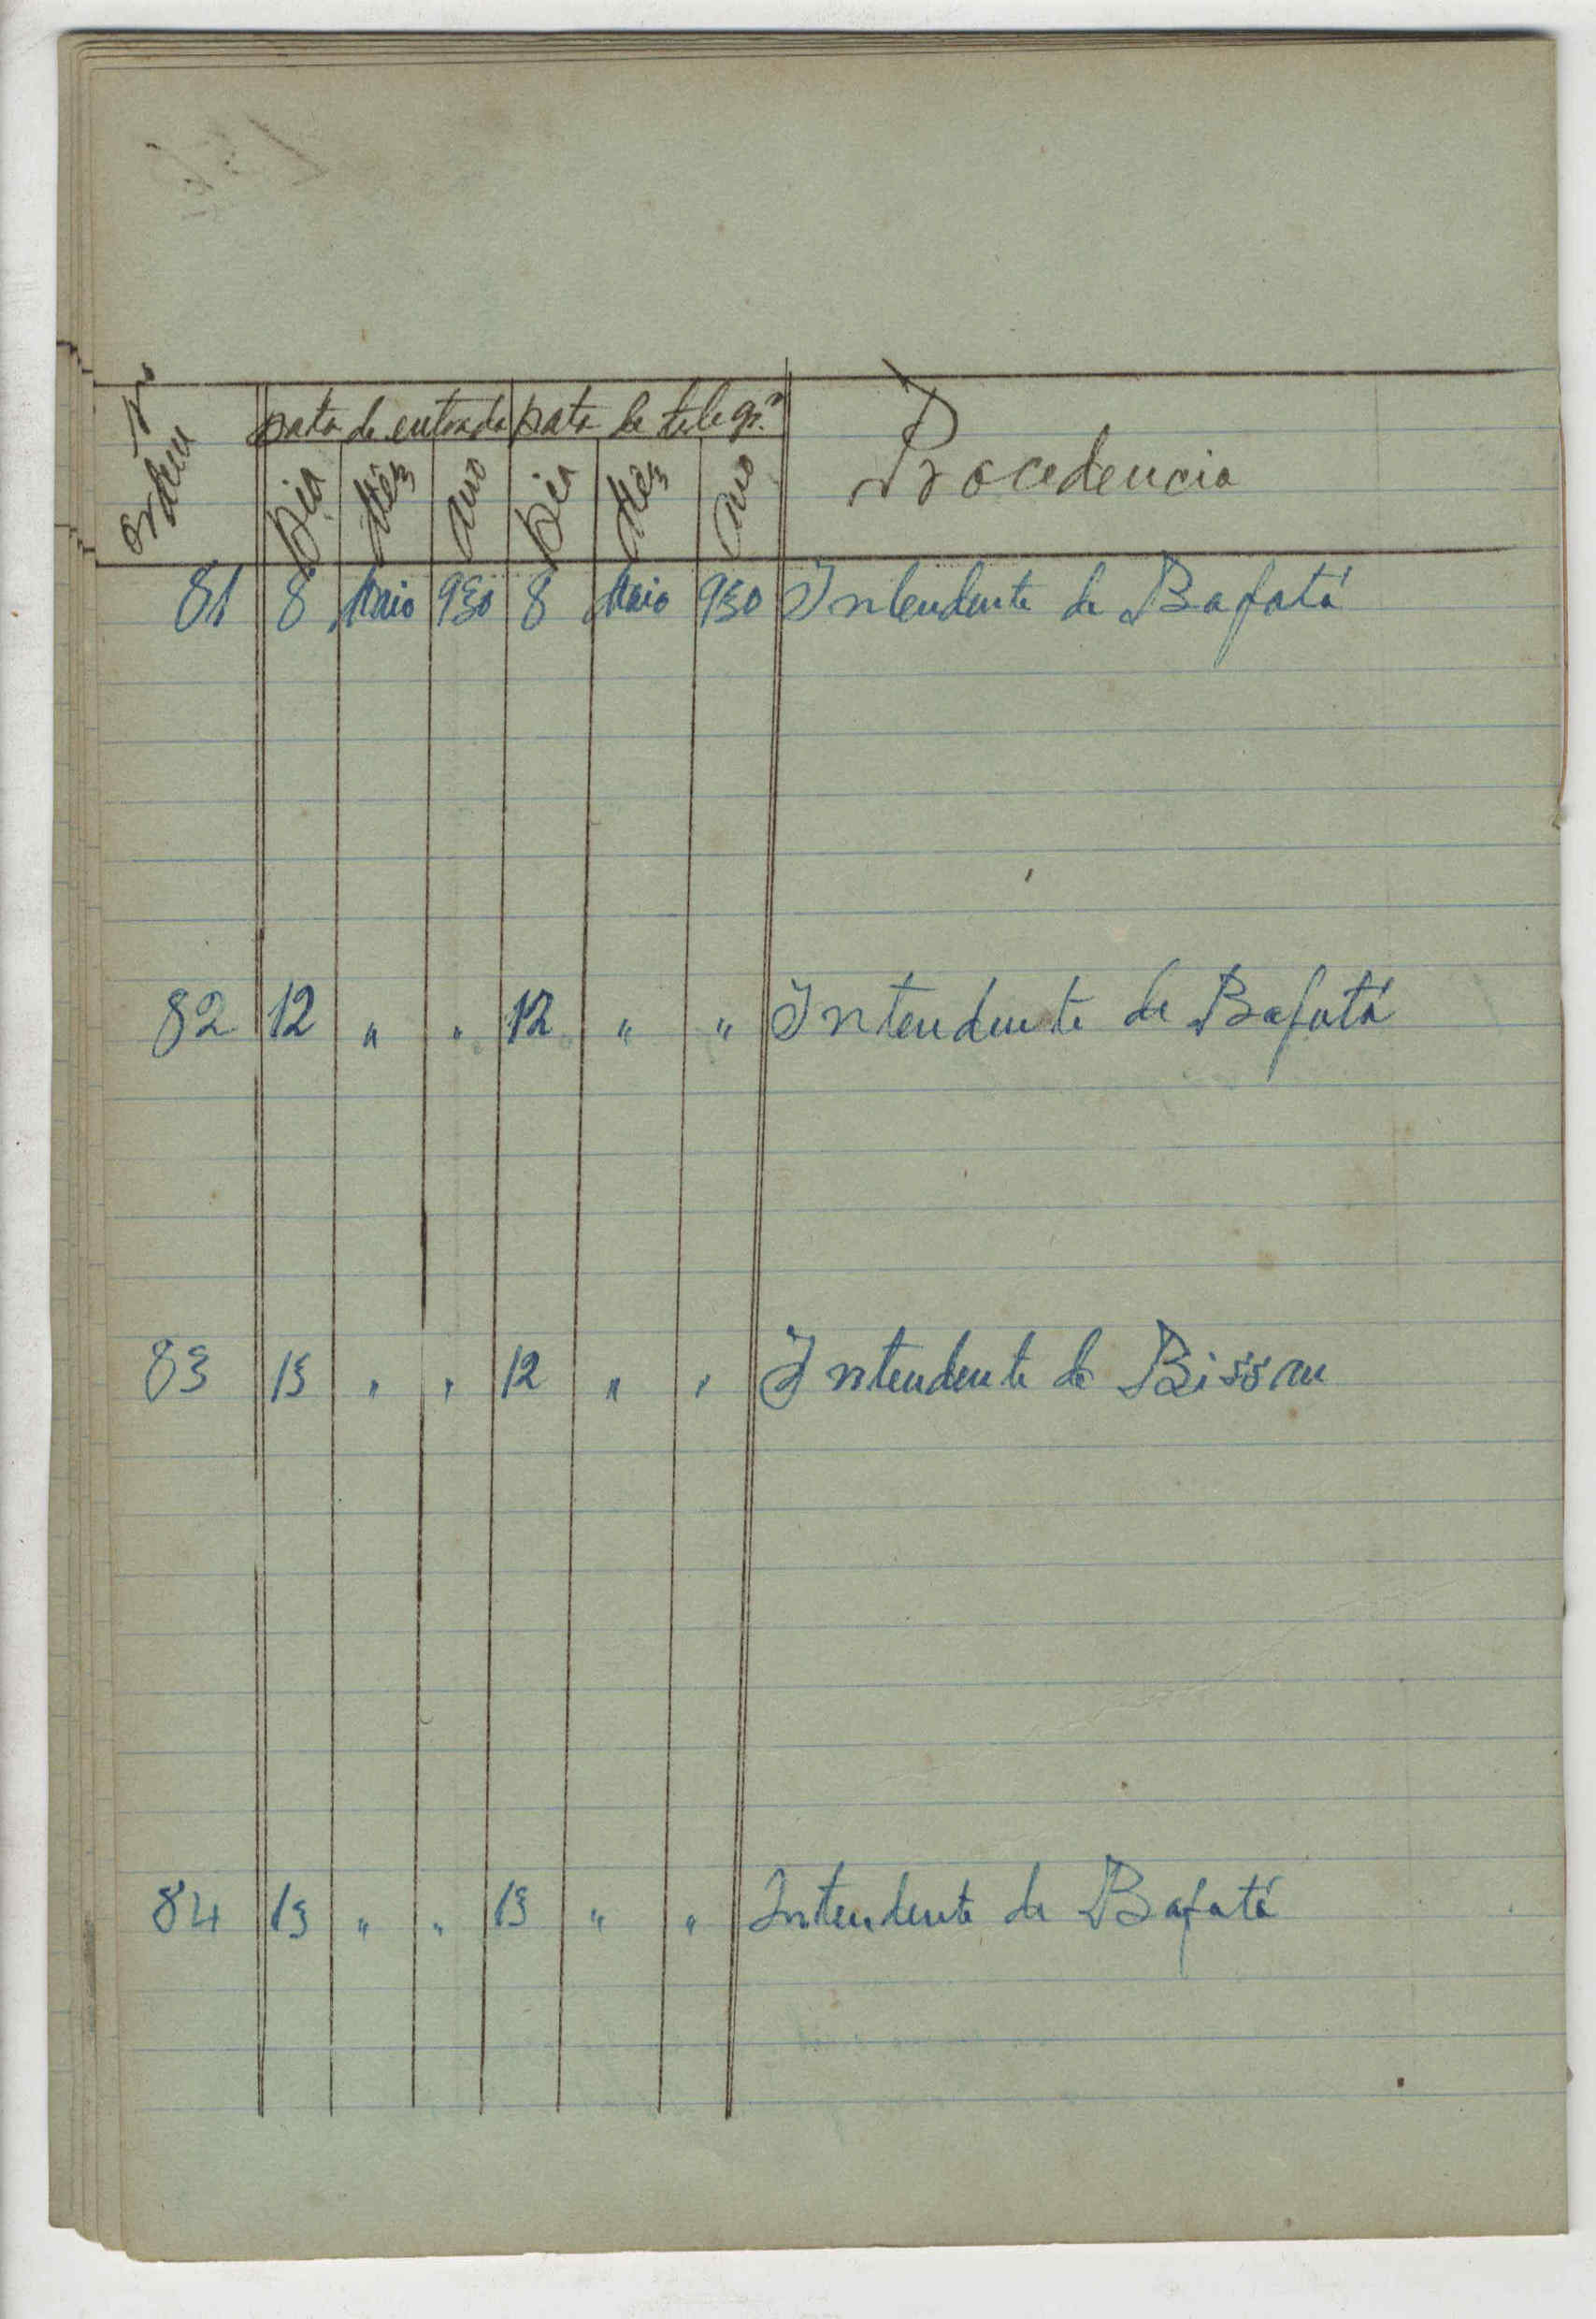 Nº ordem Data de entrada Data de telegrª Procedencia
Dia Mêz Ano Dia Mêz Ano
81 8 Maio 930 8 Maio 930 Intendente de Bafatá
82 12 " " 12 " " Intendente de Bafatá
83 13 " " 12 " " Intendente de Bissau
84 13 " " 13 " " Intendente de Bafatá